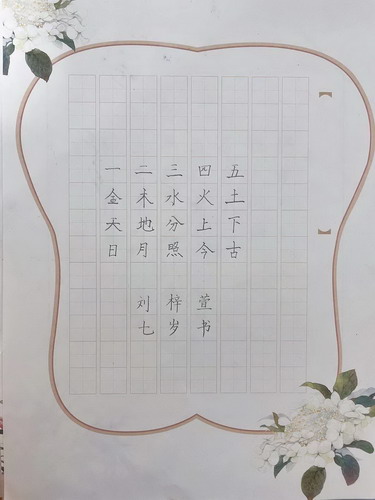 一二三四五
金木水火土
天地分上下
日月照今古
刘梓萱
七岁书